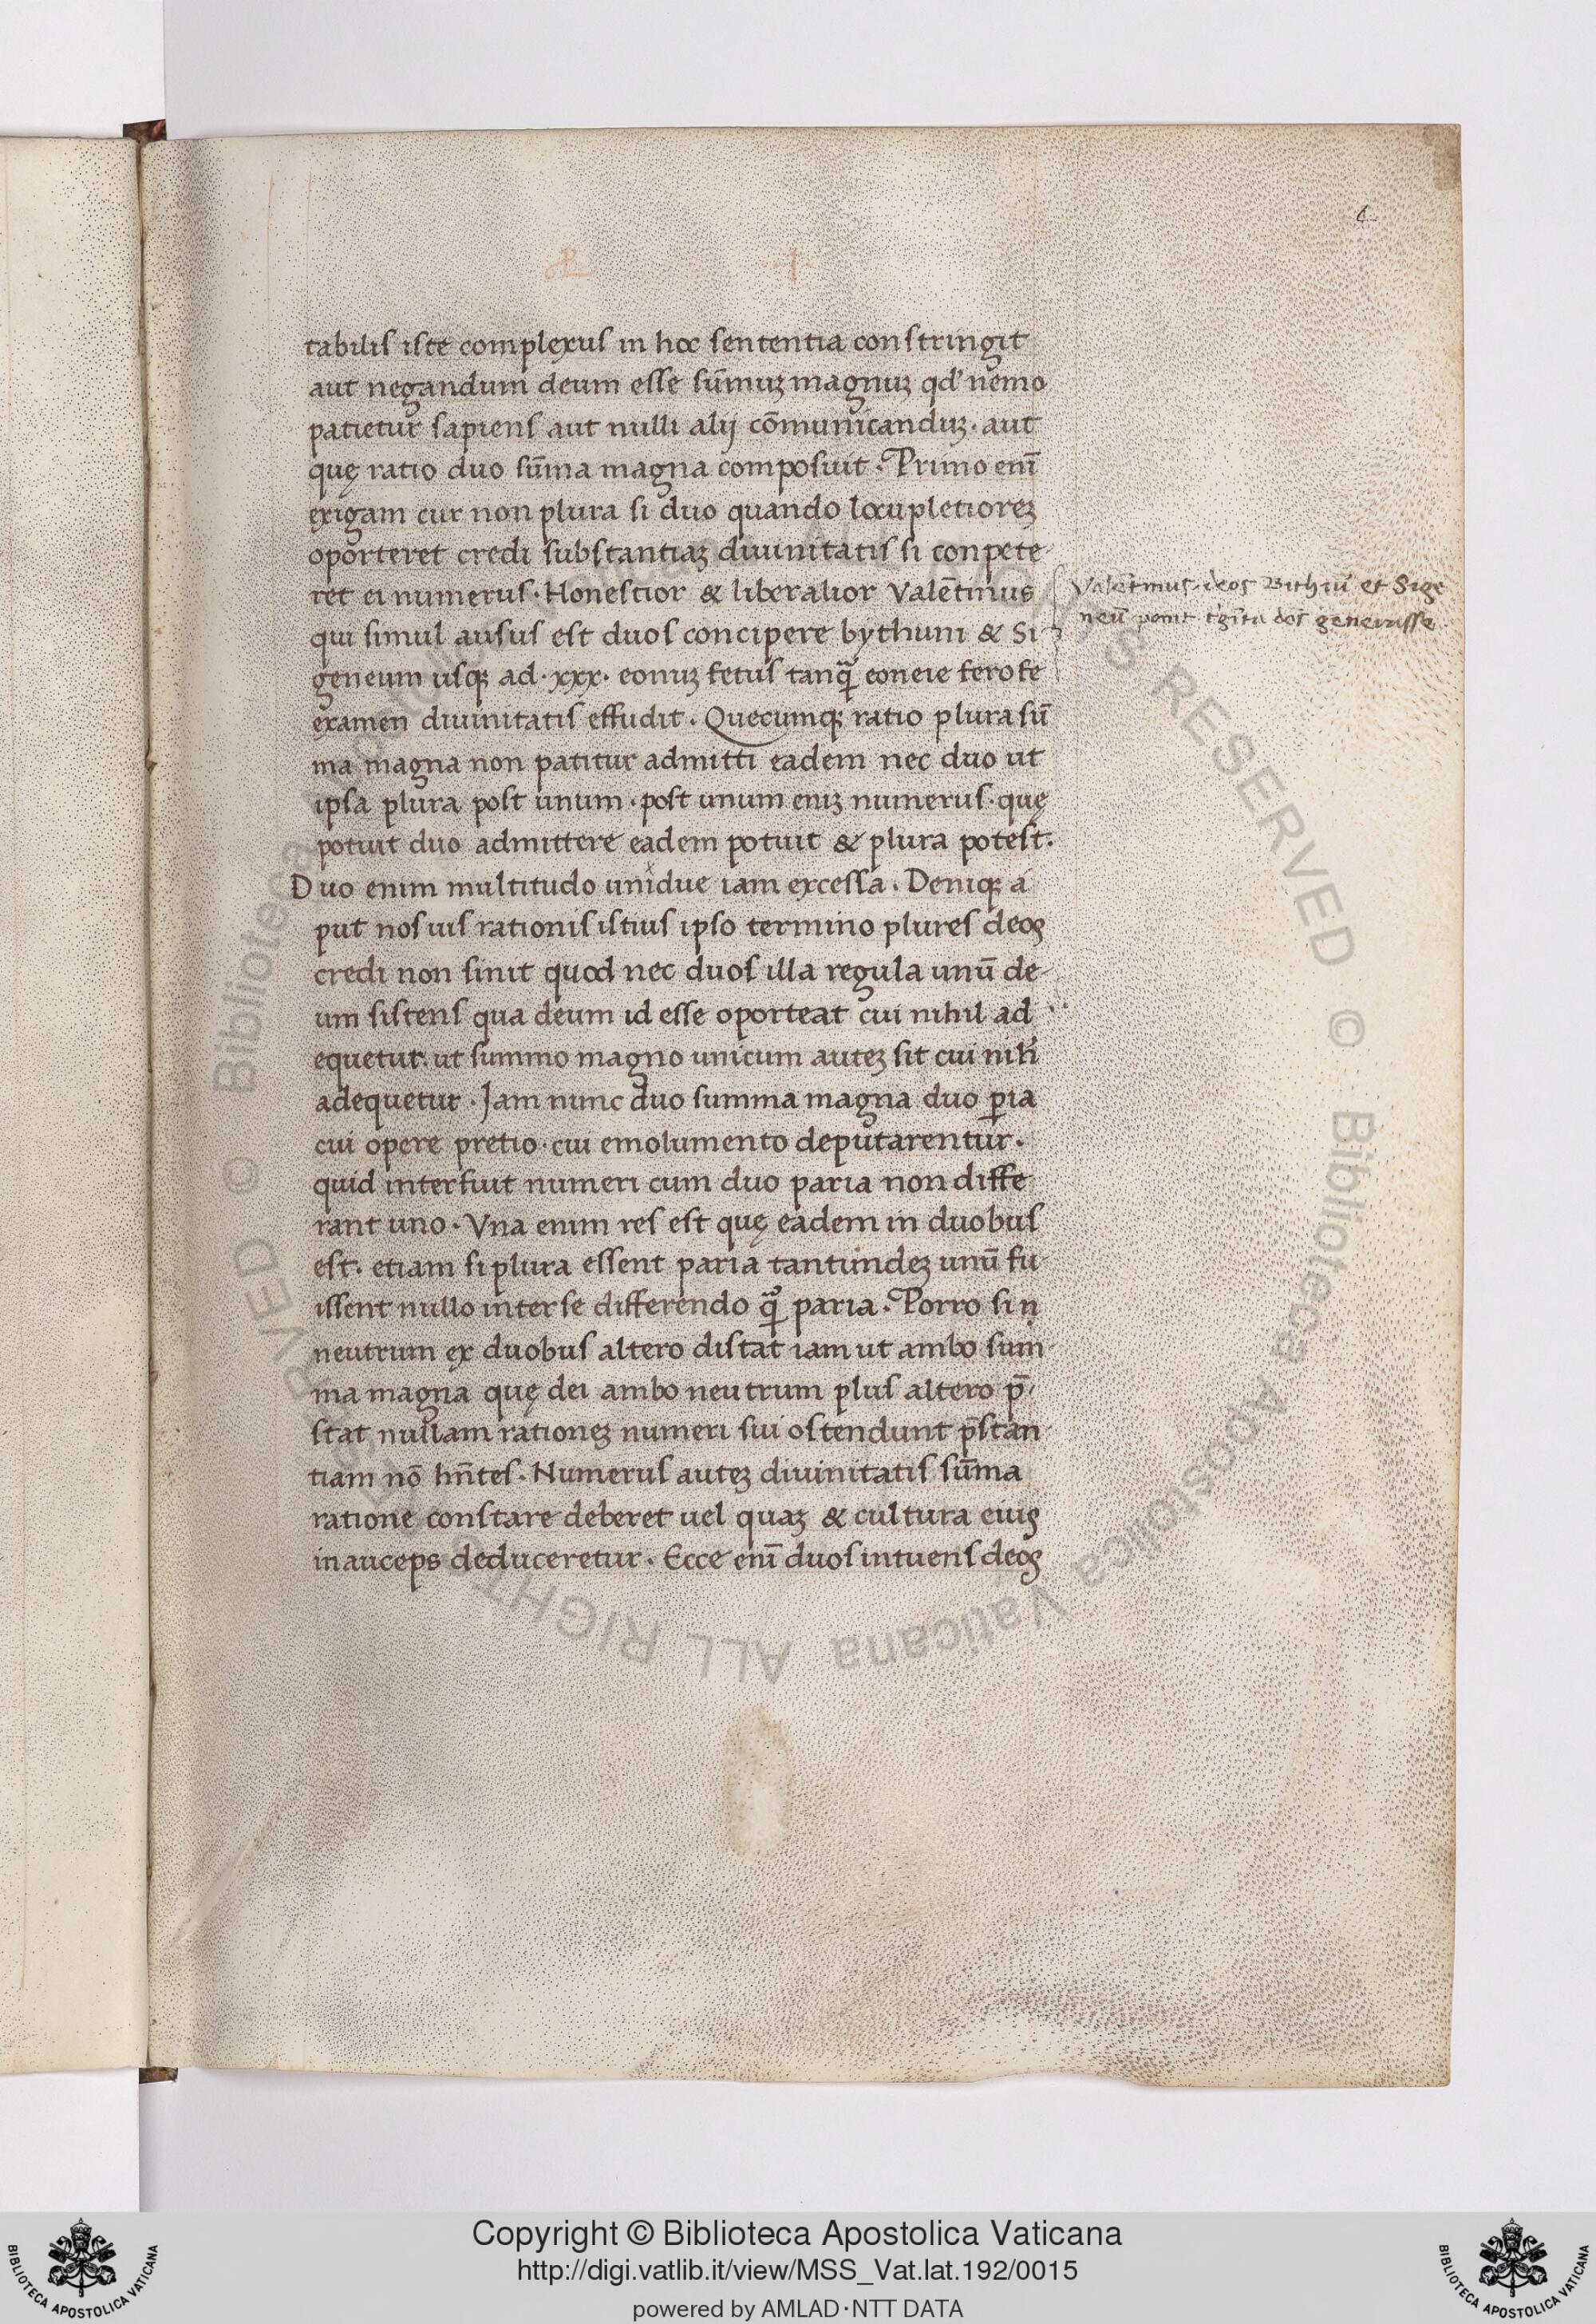 tabilis iste complexus in hoc sententia constringit
aut negandum deum esse sūmuꝫ magnuꝫ qd' nemo
patietur sapiens aut nulli alij cōmunicanduꝫ · aut
quę ratio duo sūma magna composuit · Primo enī
exigam cur non plura si duo quando locupletioreꝫ
oporteret credi substantiaꝫ diuinitatis si conpete-
ret ei numerus · Honestior & liberalior Valētinus
qui simul ausus est duos concipere bythum & Si-
geneum usqꝫ ad · xxx · eonuꝫ fetus tanqꝫ̃ eoneie ferofe
examen diuinitatis effudit · Quecumqꝫ ratio plura sū
ma magna non patitur admitti eadem nec duo ut
ipsa plura post unum · post unum eniꝫ numerus · quę
potuit duo admittere eadem potuit & plura potest.
Duo enim multitudo unidue iam excessa . Deniqꝫ a
put nos uis rationis istius ipso termino plures deos
credi non sinit quod nec duos illa regula unū de-
um sistens qua deum id esse oporteat cui nihil ad
equetur. ut summo magno unicum auteꝫ sit cui nih'
adequetur · Jam nunc duo summa magna duo ꝑia
cui opere pretio · cui emolumento deputarentur.
quid interfuit numeri cum duo paria non diffe
rant uno · Vna enim res est quę eadem in duobus
est. etiam si plura essent paria tantundeꝫ unū fu-
issent nullo inter se differendo qꝫ̃ paria . Porro si n
neutrum ex duobus altero distat iam ut ambo sum-
ma magna quę dei ambo neutrum plus altero p̄-
stat nullam rationeꝫ numeri sui ostendunt p̄stan-
tiam nō hn̄tes · Numerus auteꝫ diuinitatis sūma
ratione constare deberet uel quaꝫ & cultura eius
in auceps deduceretur . Ecce enī duos intuens deos
Valētinus deos Bithiū et Sige
neū ponit generasse
Copyright © Biblioteca Apostolica Vaticana
http://digi.vatlib.it/view/MSS_Vat.lat.192/0015
powered by AMLAD·NTT DATA
BIBLIOTECA APOSTOLICA VATICANA
BIBLIOTECA APOSTOLICA VATICANA
© Biblioteca Apostolica Vaticana ALL RIGHTS RESERVED © Biblioteca Apostolica Vaticana ALL RIGHTS RESERVED